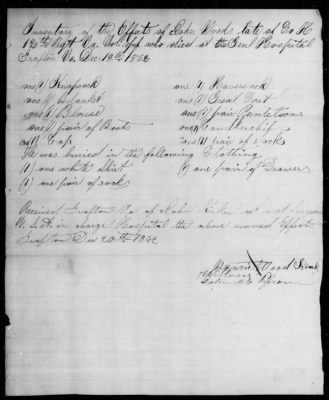 Inventory of the Effects of John Wood late of Co H
120th Regt Va. Vol. Inf who died at the Genl Hospital
Grafton Va. Dec 19th 1862
one (1) Knapsack one (1) Haversack
one (1) Blanket one (1) Great Coat
one (1) Blouse one (1) pair Pantaloons
one (1) pair of Boots one Handkerchif
one (1) Cap one (1) pair of Sock
He was buried in the following Clothing
(1) one white Shirt (1) one pair of Drawers
(1) one pair of sock
Received Grafton Va of John asst Surgeon
U.S.A. in charge Hospital the above named Effects
Grafton Dec 20th 1862
Wood
Witness